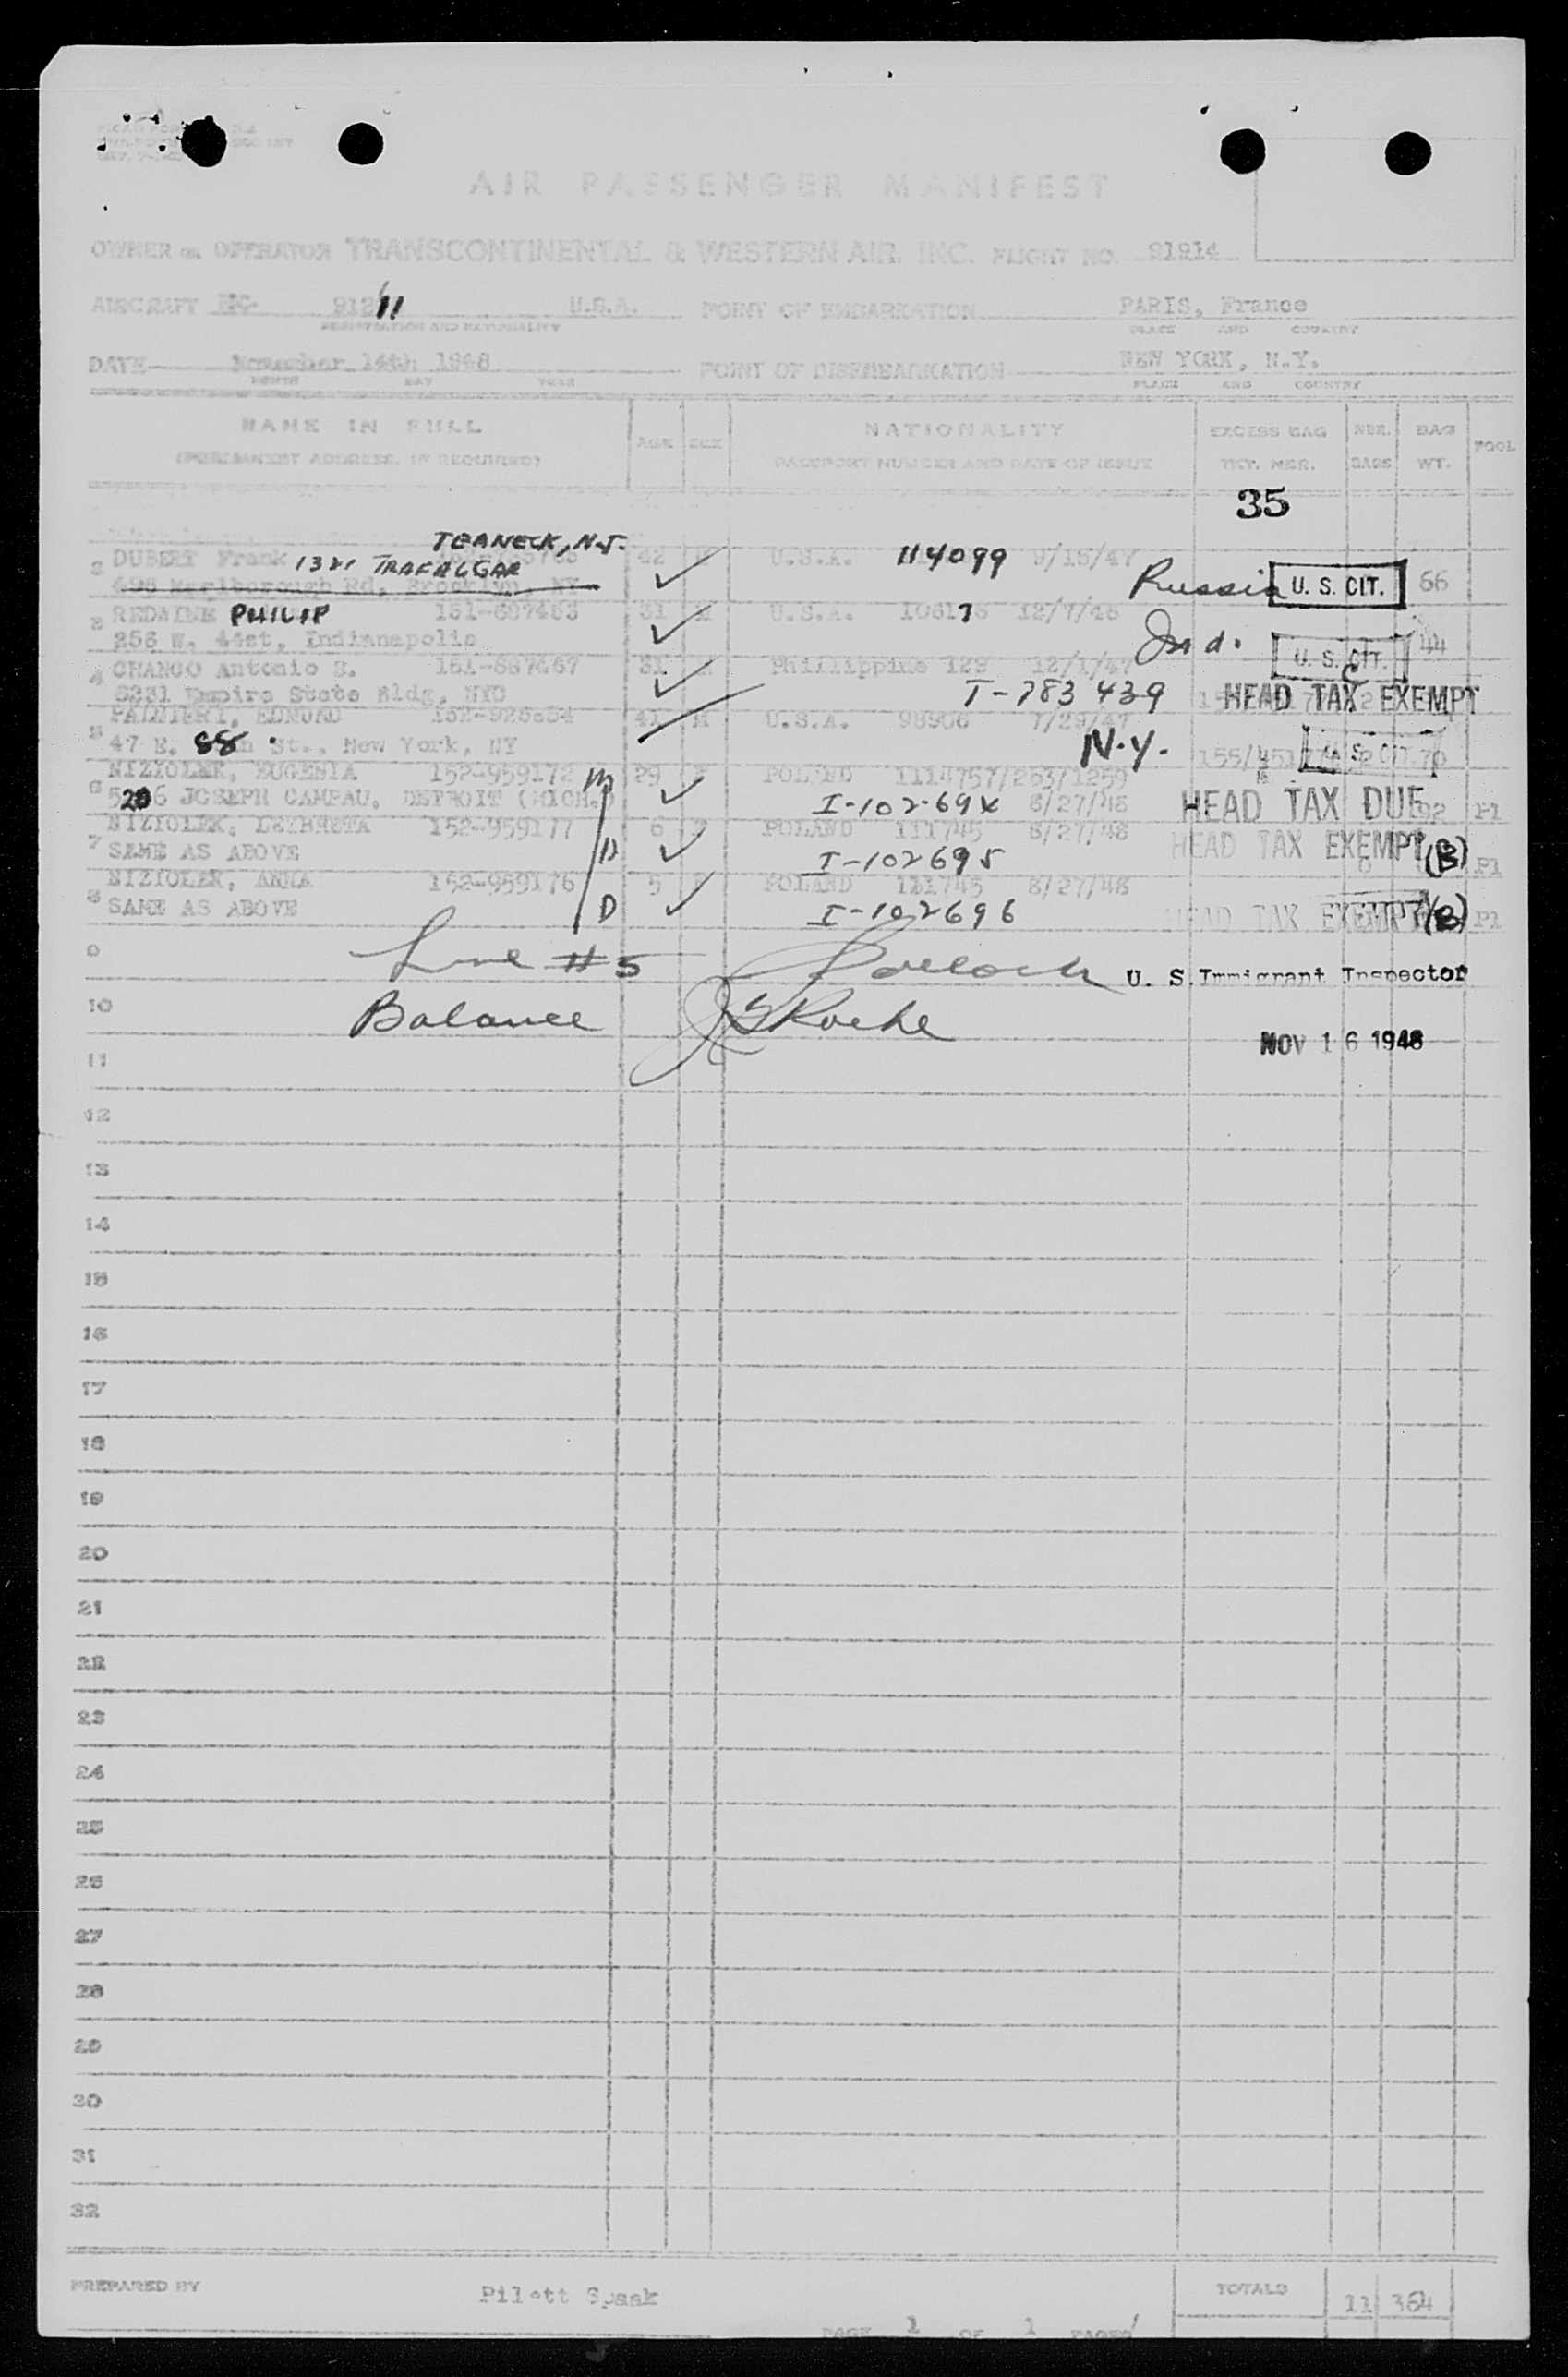 AIR PASSENGER MANIFEST
OWNER OR OPERATOR TRANSCONTINENTAL & WESTERN AIR, INC. FLIGHT NO. 91214
AIRCRAFT NC- 91211 U.S.A. POINT OF EMBARKATION PARIS, France
REGISTRATION AND NATIONALITY PLACE AND COUNTRY
DATE November 14th 1948 POINT OF DISEMBARKATION NEW YORK, N.Y.
MONTH DAY YEAR PLACE AND COUNTRY
NAME IN FULL AGE SEX NATIONALITY EXCESS BAG NBR. BAG POOL
(PERMANENT ADDRESS, IF REQUIRED) PASSPORT NUMBER AND DATE OF ISSUE TKT. NBR. BAGS WT.
35
TEANECK, N.J.
2 DUBERT Frank 42 U.S.A. 114099 9/15/47
1321 TRAFALGAR
698 Marlborough Rd, Brooklyn, NY Russia U. S. CIT. 66
3 REDAINE PHILIP 151-687463 31 M U.S.A. 106176 12/7/46
256 W. 44st, Indianapolis Ind. U. S. CIT. 44
4 CHANCO Antonio S. 151-687467 31 Phillippine 129 12/1/47
8231 Empire State Bldg, NYC T-783439 HEAD TAX EXEMPT
5 PALMIERI, EDMUND 41 M U.S.A. 98906 7/29/47
47 E. 88 St., New York, NY N.Y. U. S. CIT. 70
6 NIZIOLEK, EUGENIA 152-959172 M 29 F POLAND 1114757/263/1259
5206 JOSEPH CAMPAU, DETROIT (MICH.) I-102694 8/27/48 HEAD TAX DUE 92 Pl
7 NIZIOLEK, 152-959177 6 F POLAND 111745 8/27/48
SAME AS ABOVE D I-102695 HEAD TAX EXEMPT (B) Pl
8 NIZIOLEK, ANNA 152-959176 5 F POLAND 111745 8/27/48
SAME AS ABOVE D I-102696 HEAD TAX EXEMPT (B) Pl
9 Line #5 U. S. Immigrant Inspector
10 Balance JSRoche
11 NOV 16 1948
12
13
14
15
16
17
18
19
20
21
22
23
24
25
26
27
28
29
30
31
32
PREPARED BY Pilott Spaak TOTALS 11 364
PAGE 1 OF 1 PAGES